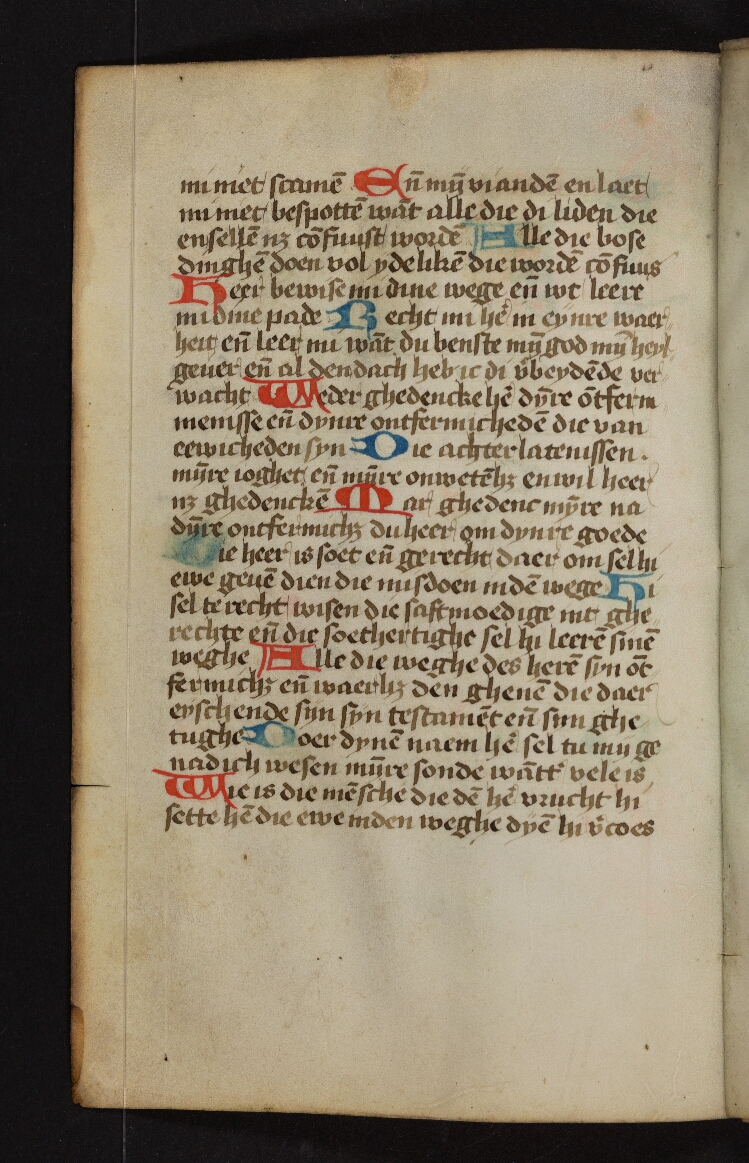 mi niet scamē En̄ mȳ viandē en laet
mi niet bespottē wāt alle die di liden die
en sellē nꝫ cōfuust wordē Alle die bose
dinghē doen vol ydelikē die wordē cōfuus
Heer bewise mi dine wege en̄ wt leere
mi dine pade Recht mi hē in eynre waer
heit en̄ leer mi wāt du benste mȳ god mȳ heyl
gever en̄ al den dach heb ic di v̄beydēde ver
wacht Weder ghedencke hē dȳre ōtferm
menisse en̄ dynre ontfermichedē die van
eewicheden syn Die achterlatenissen .
mȳre ioghet en̄ mȳre onwetēhꝫ en wil heer
nꝫ ghedenckē Mar ghedenc mȳre na
dȳre ontfermichꝫ du heer om dynre goede
Die heer is soet en̄ gerecht daer om sel hi
ewe gevē dien die misdoen in dē wege Hi
sel te recht wisen die saftmoedige int ghe
rechte en̄ die soethertighe sel hi leerē sinē
weghe Alle die weghe des herē syn ōt
fermichꝫ en̄ waerhꝫ den ghenē die daer
eyschende sijn syn testamēt en̄ sijn ghe
tughe Doer dynē naem hē sel tu mij ge
nadich wesen mȳre sonde wātt vele is
Wie is die mēsche die dē hē vrucht hi
sette hē die ewe in den weghe dyē hi v̄coes